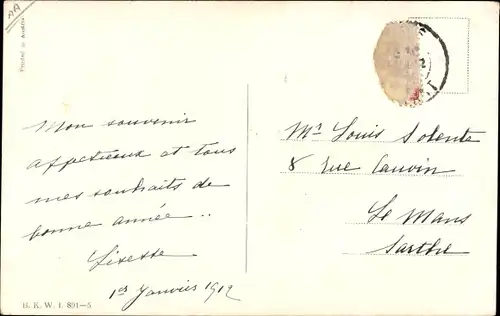 AA
Printed in Austria
Mon souvenir
affectueux et tous
mes souhaits de
bonne année..
Lisette
1er Janvier 1912
B. K. W. I. 891-5
Mr Louis Solente
8 Rue Cauvin
Le Mans
Sarthe